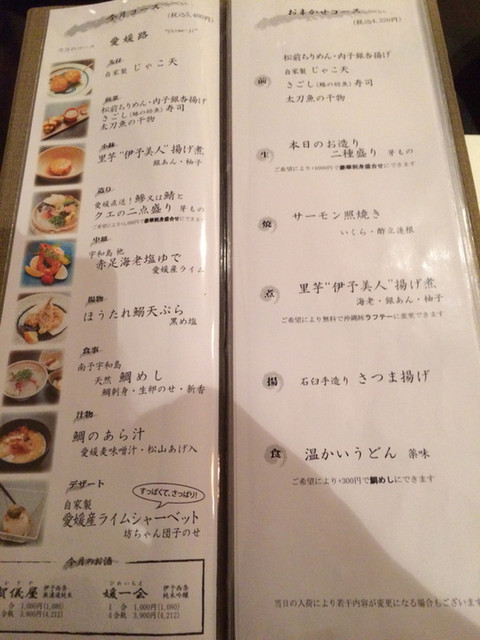 今月コース
(税込5,400円)
愛媛路
"Ehime-ji"
自家製 じゃこ天
松前ちりめん・内子銀杏揚げ
さごし(鰆の幼魚)寿司
太刀魚の干物
里芋“伊予美人”揚げ煮
銀あん・柚子
愛媛直送!鯵又は鯖と
クエの二点盛り 芽もの
中皿
宇和島 他
赤足海老塩ゆで
愛媛産ライム
揚物
ほうたれ鰯天ぷら
黒め塩
食事
南予宇和島
天然 鯛めし
鯛刺身・生卵のせ・新香
汁物
鯛のあら汁
愛媛麦味噌汁・松山あげ入
デザート
すっぱくて、さっぱり!
自家製
愛媛産ライムシャーベット
坊ちゃん団子のせ
今月のお酒
賀儀屋
伊予西条
無濾過純米
1,000円(1,080)
合瓶 3,900円(4,212)
ひめいちえ
媛一会
伊予西条
純米吟醸
1合 1,000円(1,080)
4合瓶 3,900円(4,212)
おまかせコース
(税込4,320円)
前
松前ちりめん・内子銀杏揚げ
自家製 じゃこ天
さごし(鰆の幼魚)寿司
太刀魚の干物
生
本日のお造り
二種盛り 芽もの
ご希望により+1000円で豪華刺身盛合せにできます
焼
サーモン照焼き
いくら・酢立蓮根
煮
里芋“伊予美人”揚げ煮
海老・銀あん・柚子
ご希望により無料で沖縄豚ラフテーに変更できます
揚
石臼手造り さつま揚げ
食
温かいうどん 薬味
ご希望により+300円で鯛めしにできます
当日の入荷により若干内容が変更になる場合もございます